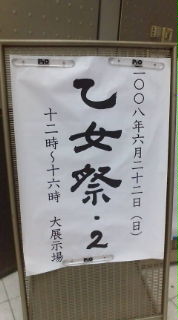 二〇〇八年六月二十二日（日）
乙女祭・2
十二時～十六時 大展示場